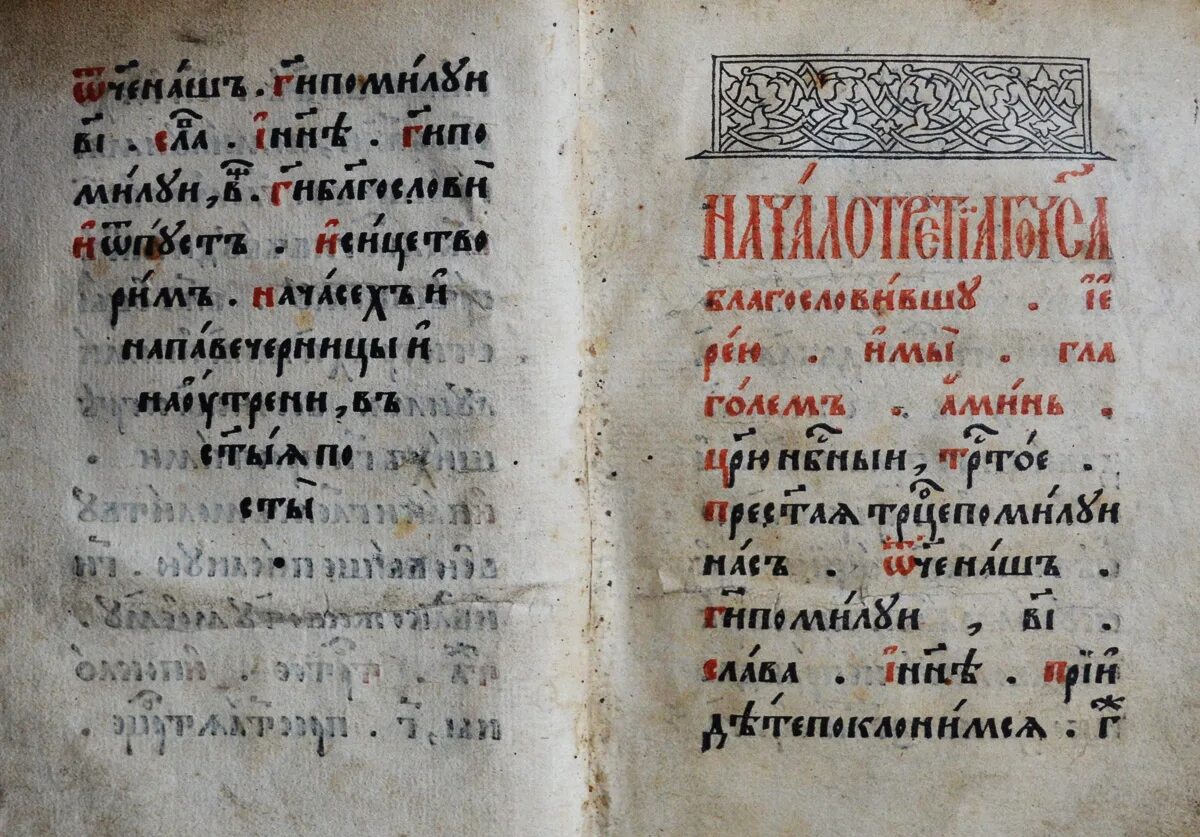 ѿч҃енашъ . гп҃и поми́луи
ві҃ . сла̑ , і҆ нн҃ѣ . гп҃и по
ми́луи , в҃ . гп҃и благослови̏
и҆ ѿпустъ . и҆ си́це тво
ри́мъ . на часе́хъ и҆
на паве́черницы и҆
на оу́трени , въ
ст҃ы́ѧ по
сты̏
нача́ло тре́тїаго часа̀
благослови́вшу . і҆е
ре́ю . и҆ мы̏ . гла
го́лемъ . а҆ми́нь .
цр҃ю нбн҃ыи , тр҃то́е .
прест҃аѧ трц҃е поми́луи
на́съ . ѿч҃ена́шъ .
гп҃и поми́луи , ві҃ .
сла́ва . і҆ нн҃ѣ . прїи
дѣ́те поклони́мсѧ . г҃